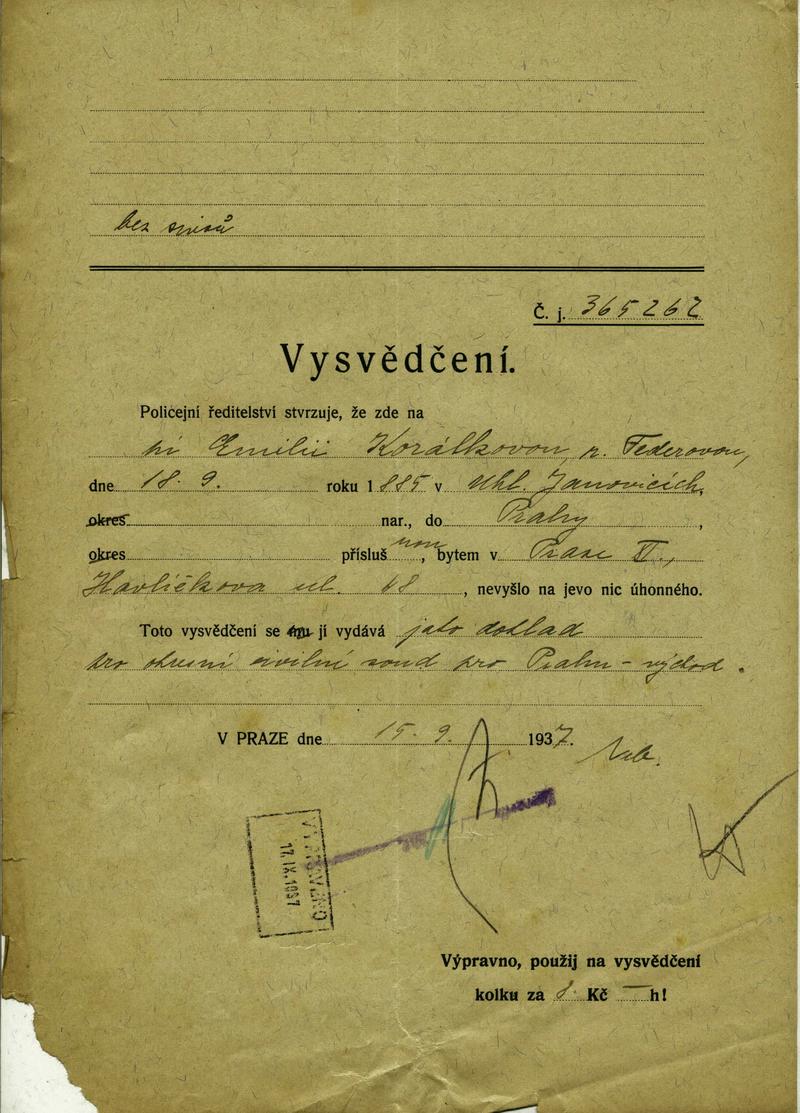 bez spisů
Č. j. 365262
Vysvědčení.
Policejní ředitelství stvrzuje, že zde na
pí Emilii Korálkovou, r. Federovou,
dne 18. 9. roku 1885 v Uhl. Janovicích,
okres nar., do Prahy,
okres příslušnou, bytem v Praze II.,
Havlíčkova ul. 68, nevyšlo na jevo nic úhonného.
Toto vysvědčení se mu jí vydává jako doklad
pro okresní civilní soud pro Prahu-východ.
V PRAZE dne 15. 9. 1937.
VYPRAVENO
17. IX. 1937
Výpravno, použij na vysvědčení
kolku za 8 Kč — h!